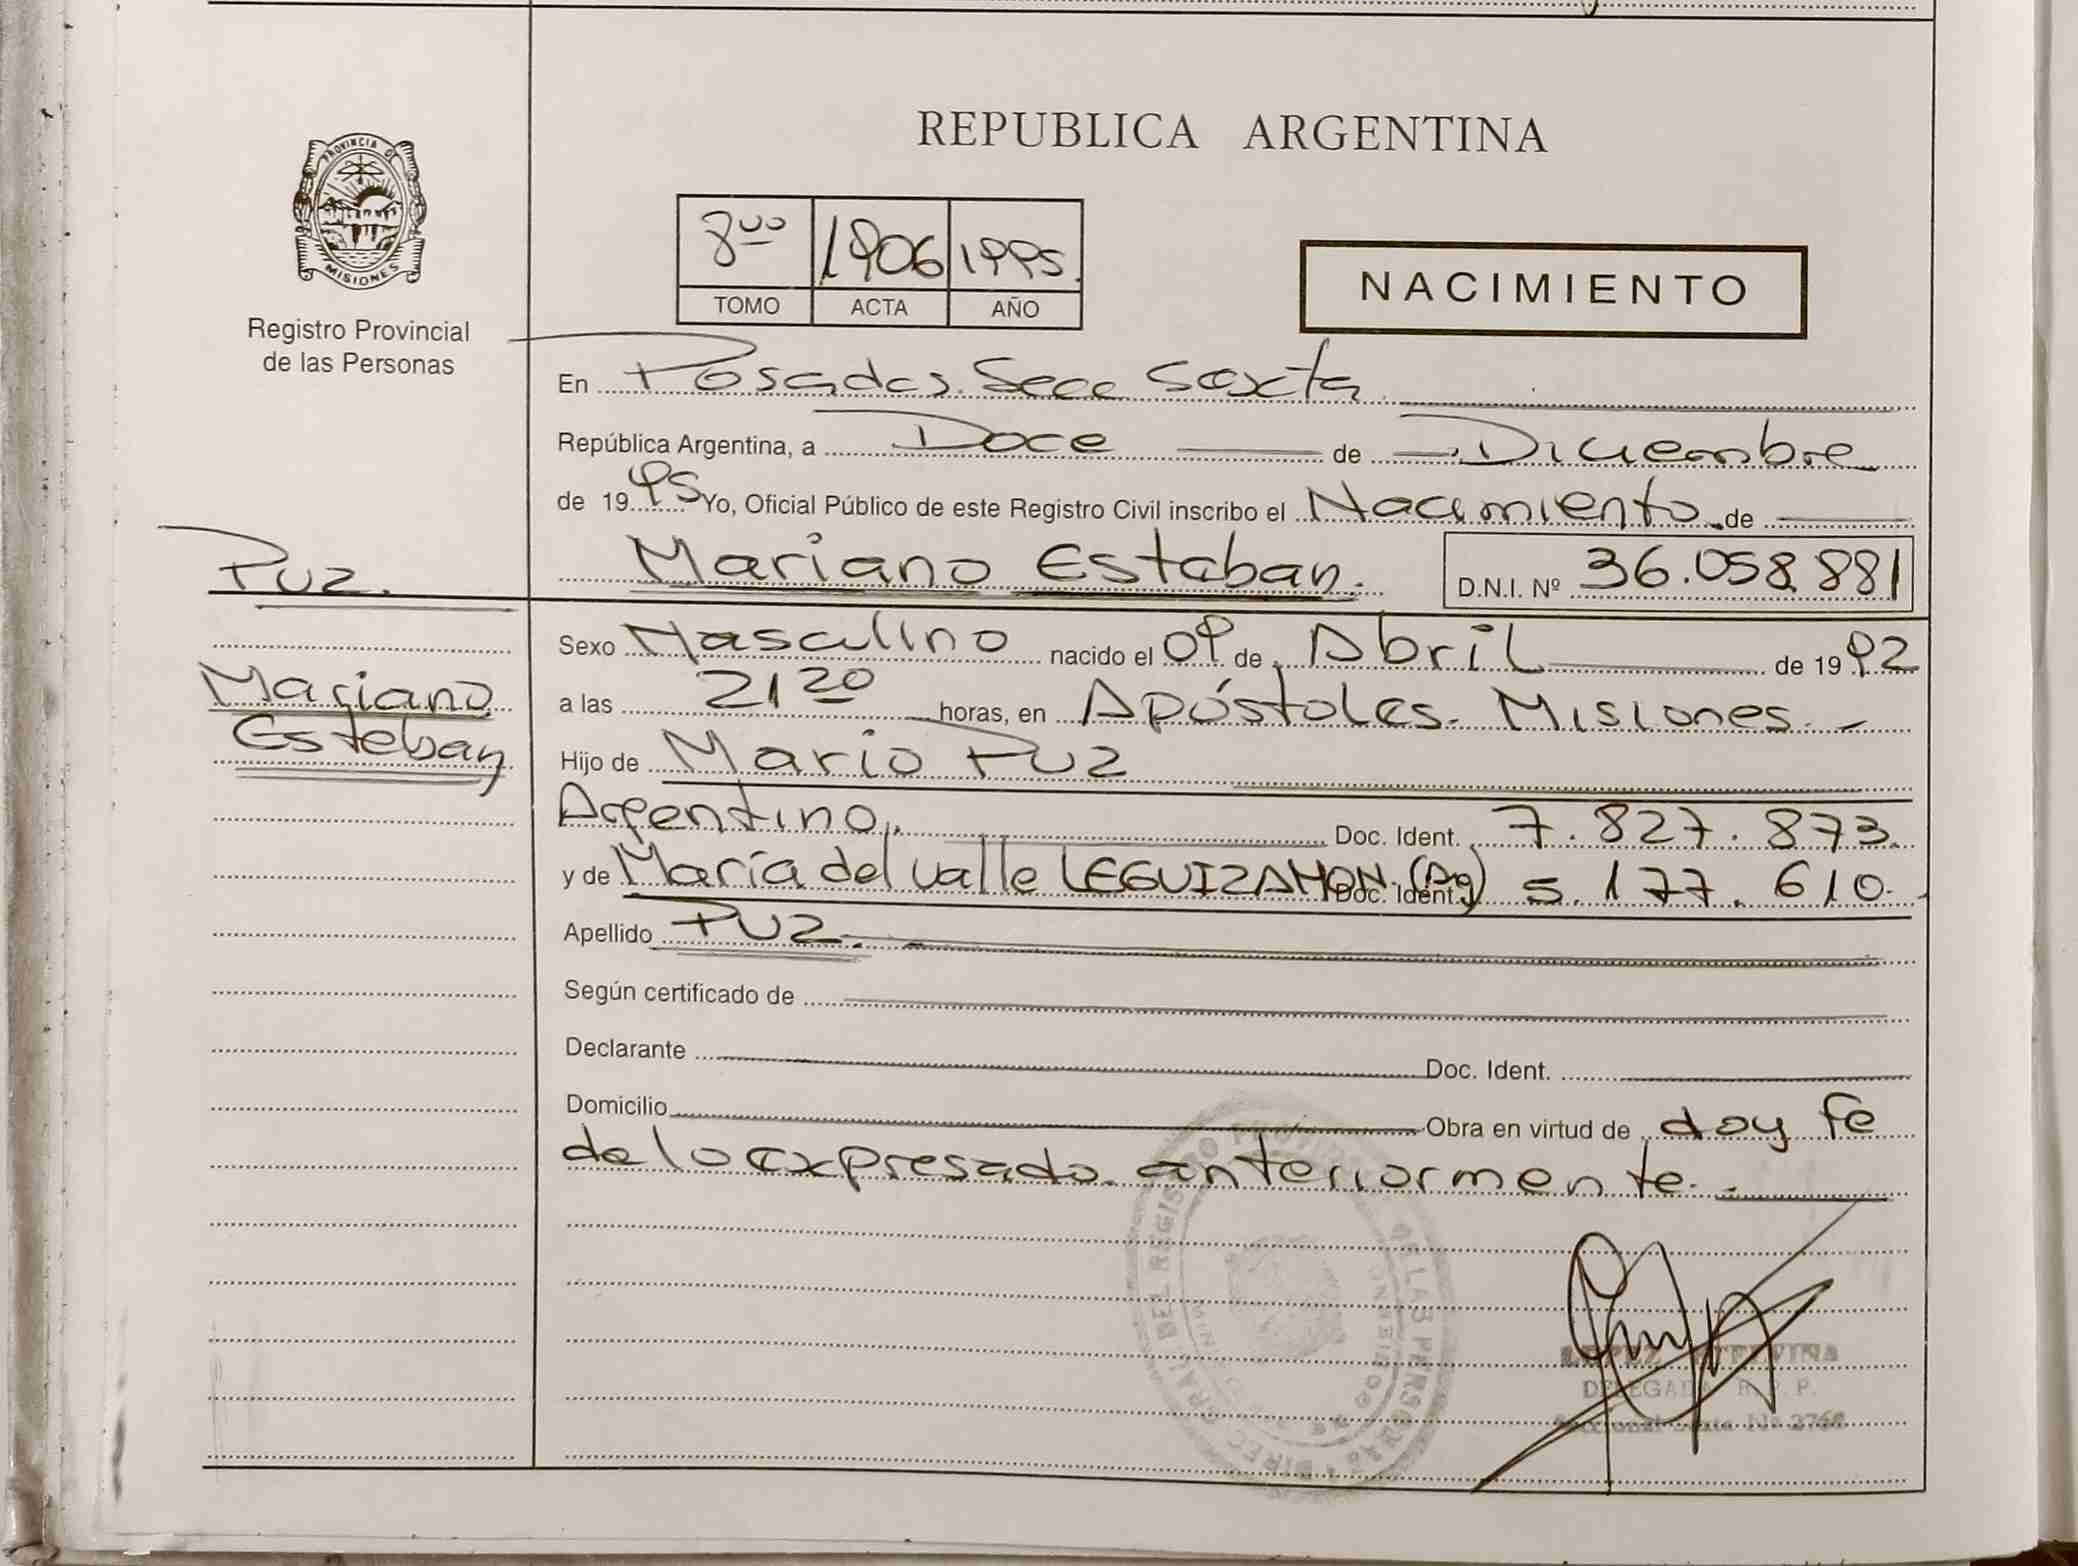 REPUBLICA ARGENTINA
PROVINCIA DE
MISIONES
Registro Provincial
de las Personas
8vo 1906 1995.
TOMO ACTA AÑO
NACIMIENTO
En Posadas. Secc Sexta
República Argentina, a Doce de Diciembre
de 1995 Yo, Oficial Público de este Registro Civil inscribo el Nacimiento de
Mariano Estaban. D.N.I. Nº 36.058.881
Puz.
Mariano
Esteban
Sexo Masculino nacido el 09 de Abril de 1992
a las 21 20 horas, en Apóstoles. Misiones.
Hijo de Mario Puz
Argentino. Doc. Ident. 7.827.873.
y de María del Valle LEGUIZAMON (Arg) Doc. Ident. 5.177.610.
Apellido Puz.
Según certificado de
Declarante Doc. Ident.
Domicilio Obra en virtud de doy fe
de lo expresado anteriormente.
DEL REGISTRO DE LAS PERSONAS
LOPEZ ETELVINA
DELEGADA R. P. P.